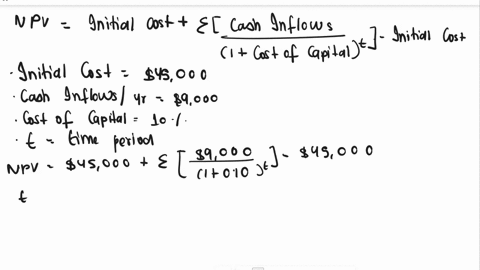 NPV = Initial cost + Σ[Cash Inflows / (1 + Cost of Capital)^t] - Initial Cost
· Initial Cost = $45,000
· Cash Inflows/yr = $9,000
· Cost of Capital = 10%
· t = time period
NPV = $45,000 + Σ[$9,000 / (1+0.10)^t] - $45,000
t